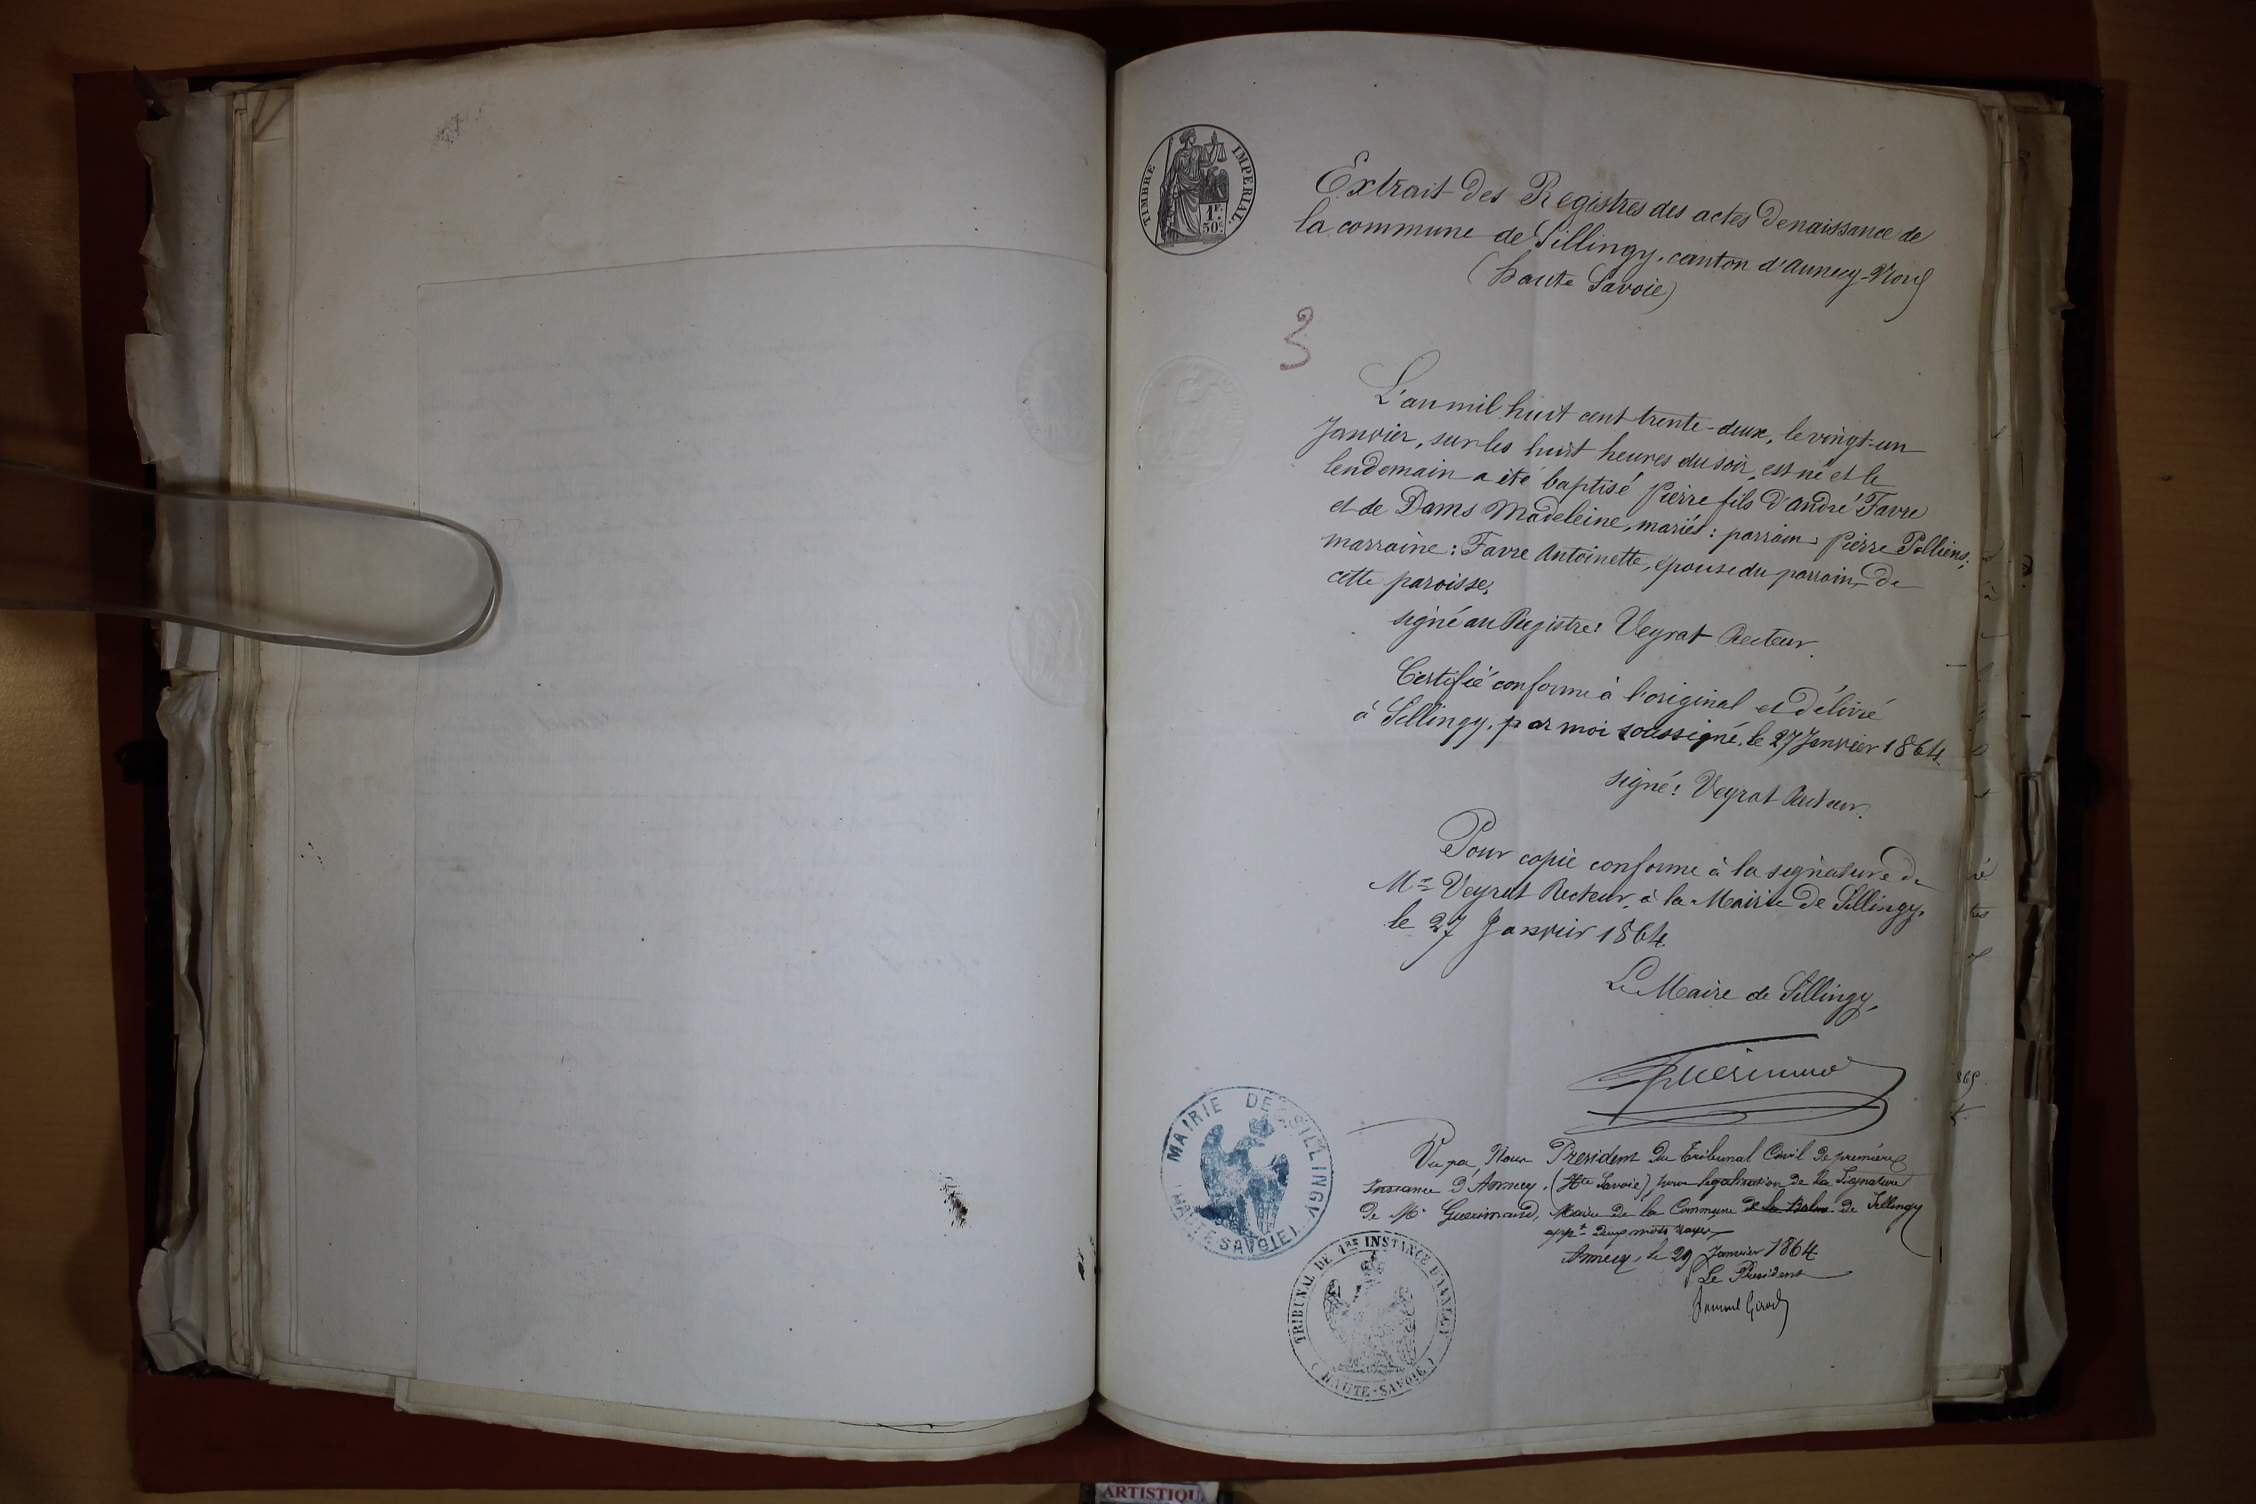 TIMBRE IMPERIAL
1F. 50c.
Extrait des Registres des actes de naissance de
la commune de Sillingy, canton d'Annecy-Nord
(haute Savoie)
3
L'an mil huit cent trente-deux, le vingt-un
Janvier, sur les huit heures du soir, est né et le
lendemain a été baptisé Pierre fils d'André Favre
et de Dams Madeleine, mariés : parrain Pierre Polliens,
marraine : Favre Antoinette, épouse du parrain, de
cette paroisse,
signé au Registre : Veyrat Recteur.
Certifié conforme à l'original et délivré
à Sillingy, par moi soussigné, le 27 Janvier 1864.
signé : Veyrat Recteur.
Pour copie conforme à la signature de
Mr Veyrat Recteur, à la Mairie de Sillingy,
le 27 Janvier 1864
Le Maire de Sillingy,
MAIRIE DE SILLINGY
(HAUTE SAVOIE)
Vu par Nous President du Tribunal Civil de première
Instance d'Annecy, (Hte Savoie), pour legalisation de la Signature
de Mr Guerimand, Maire de la Commune de la Balme de Sillingy
deux mots rayés
Annecy, le 29 Janvier 1864
Le President
TRIBUNAL DE 1RE INSTANCE D'ANNECY
(HAUTE-SAVOIE)
ARTISTIQU